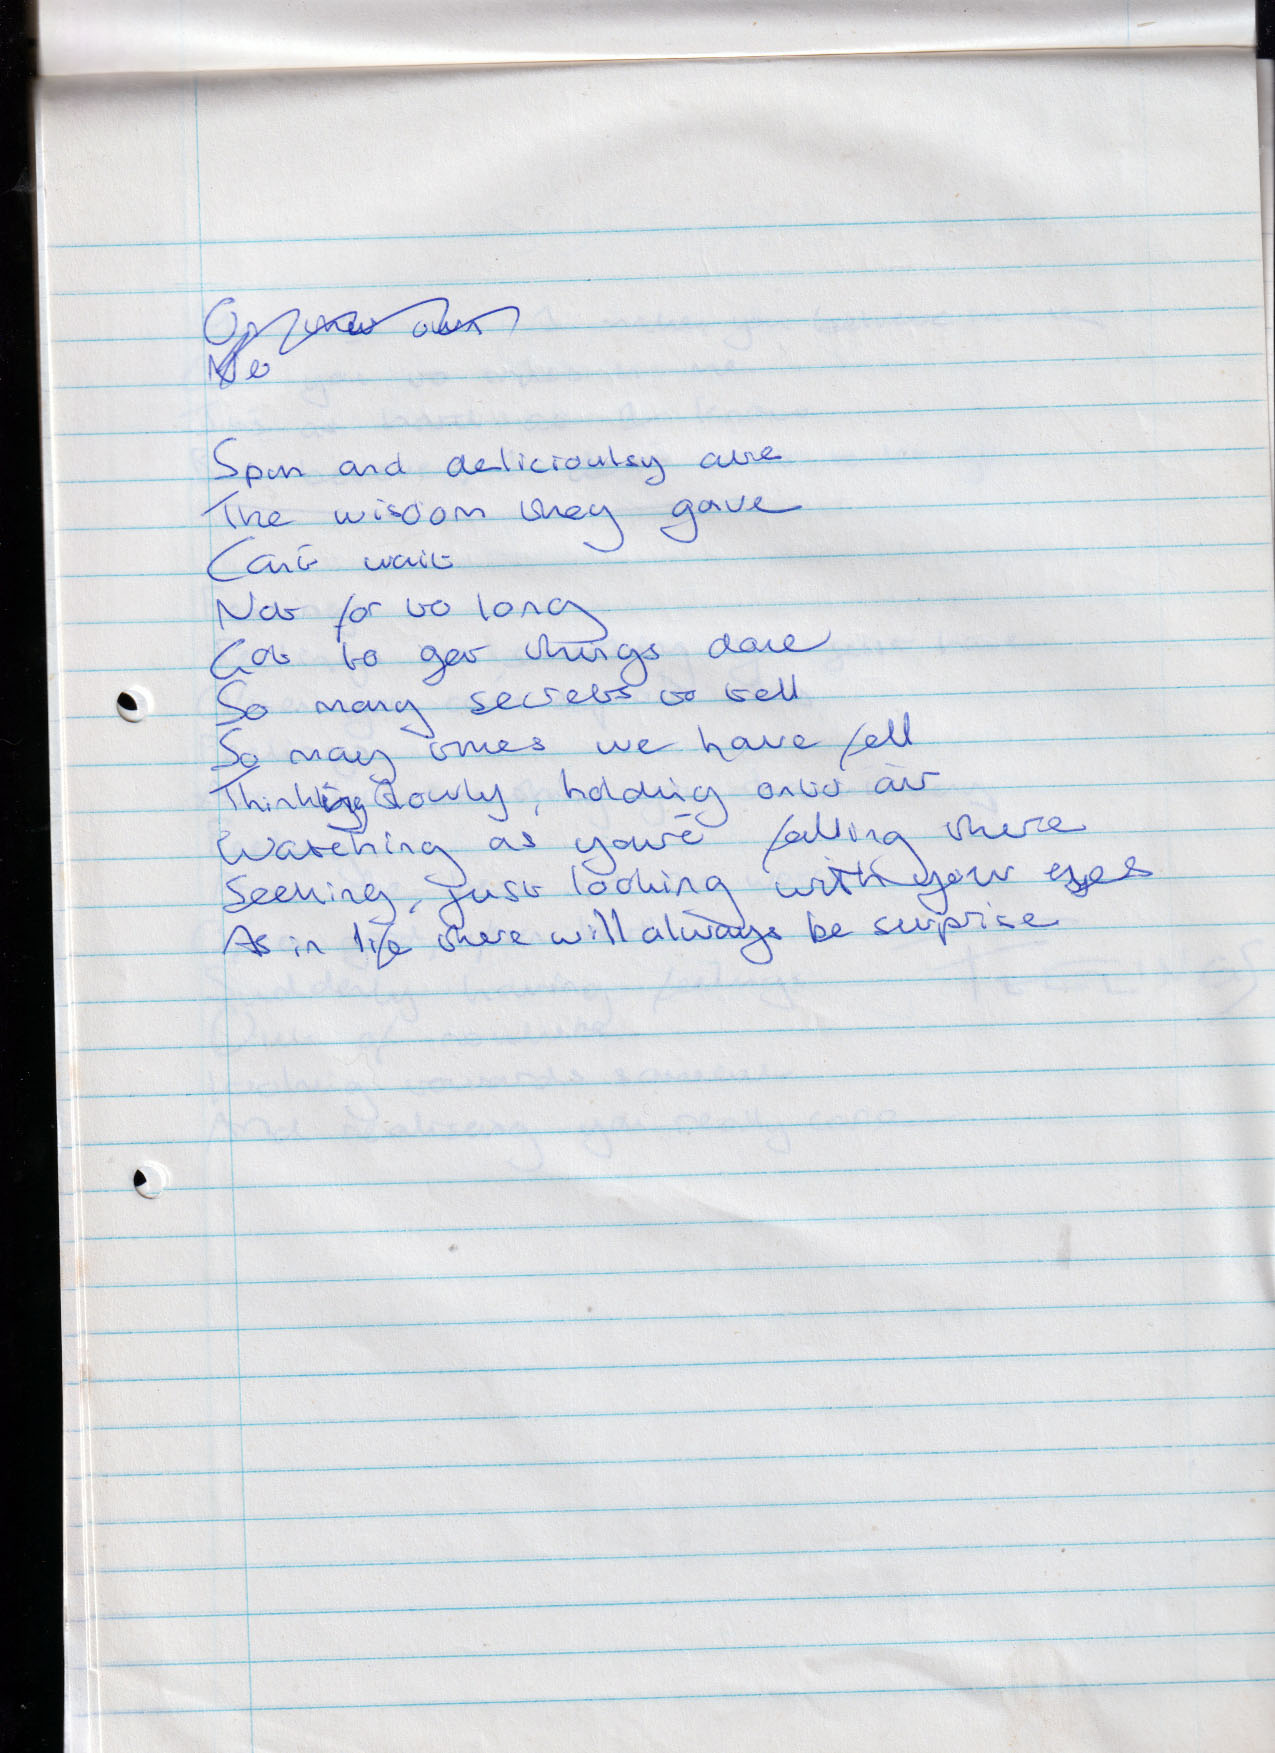 No
Spun and delicioulsy are
The wisdom they gave
Can't wait
Not for to long
Got to get things done
So many secrets to tell
So may times we have fell
Thinking slowly, holding onto air
Watching as you're falling there
Seeking, just looking with your eyes
As in life there will always be surprise